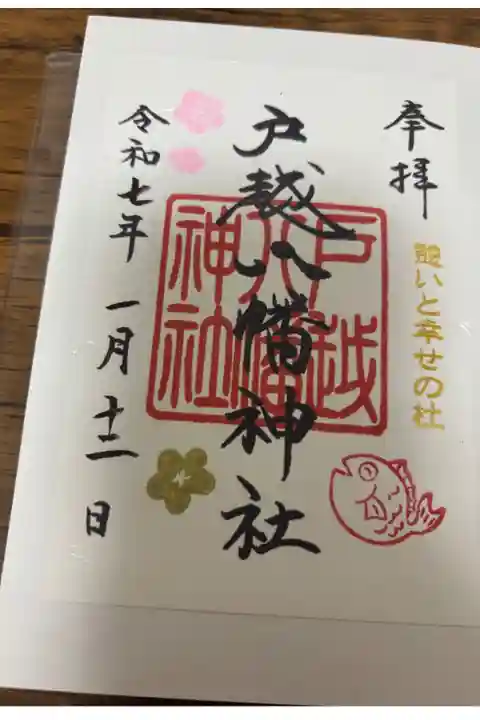 奉拝
憩いと幸せの杜
戸越八幡神社
戸越
八幡
神社
令和七年 一月 十二日